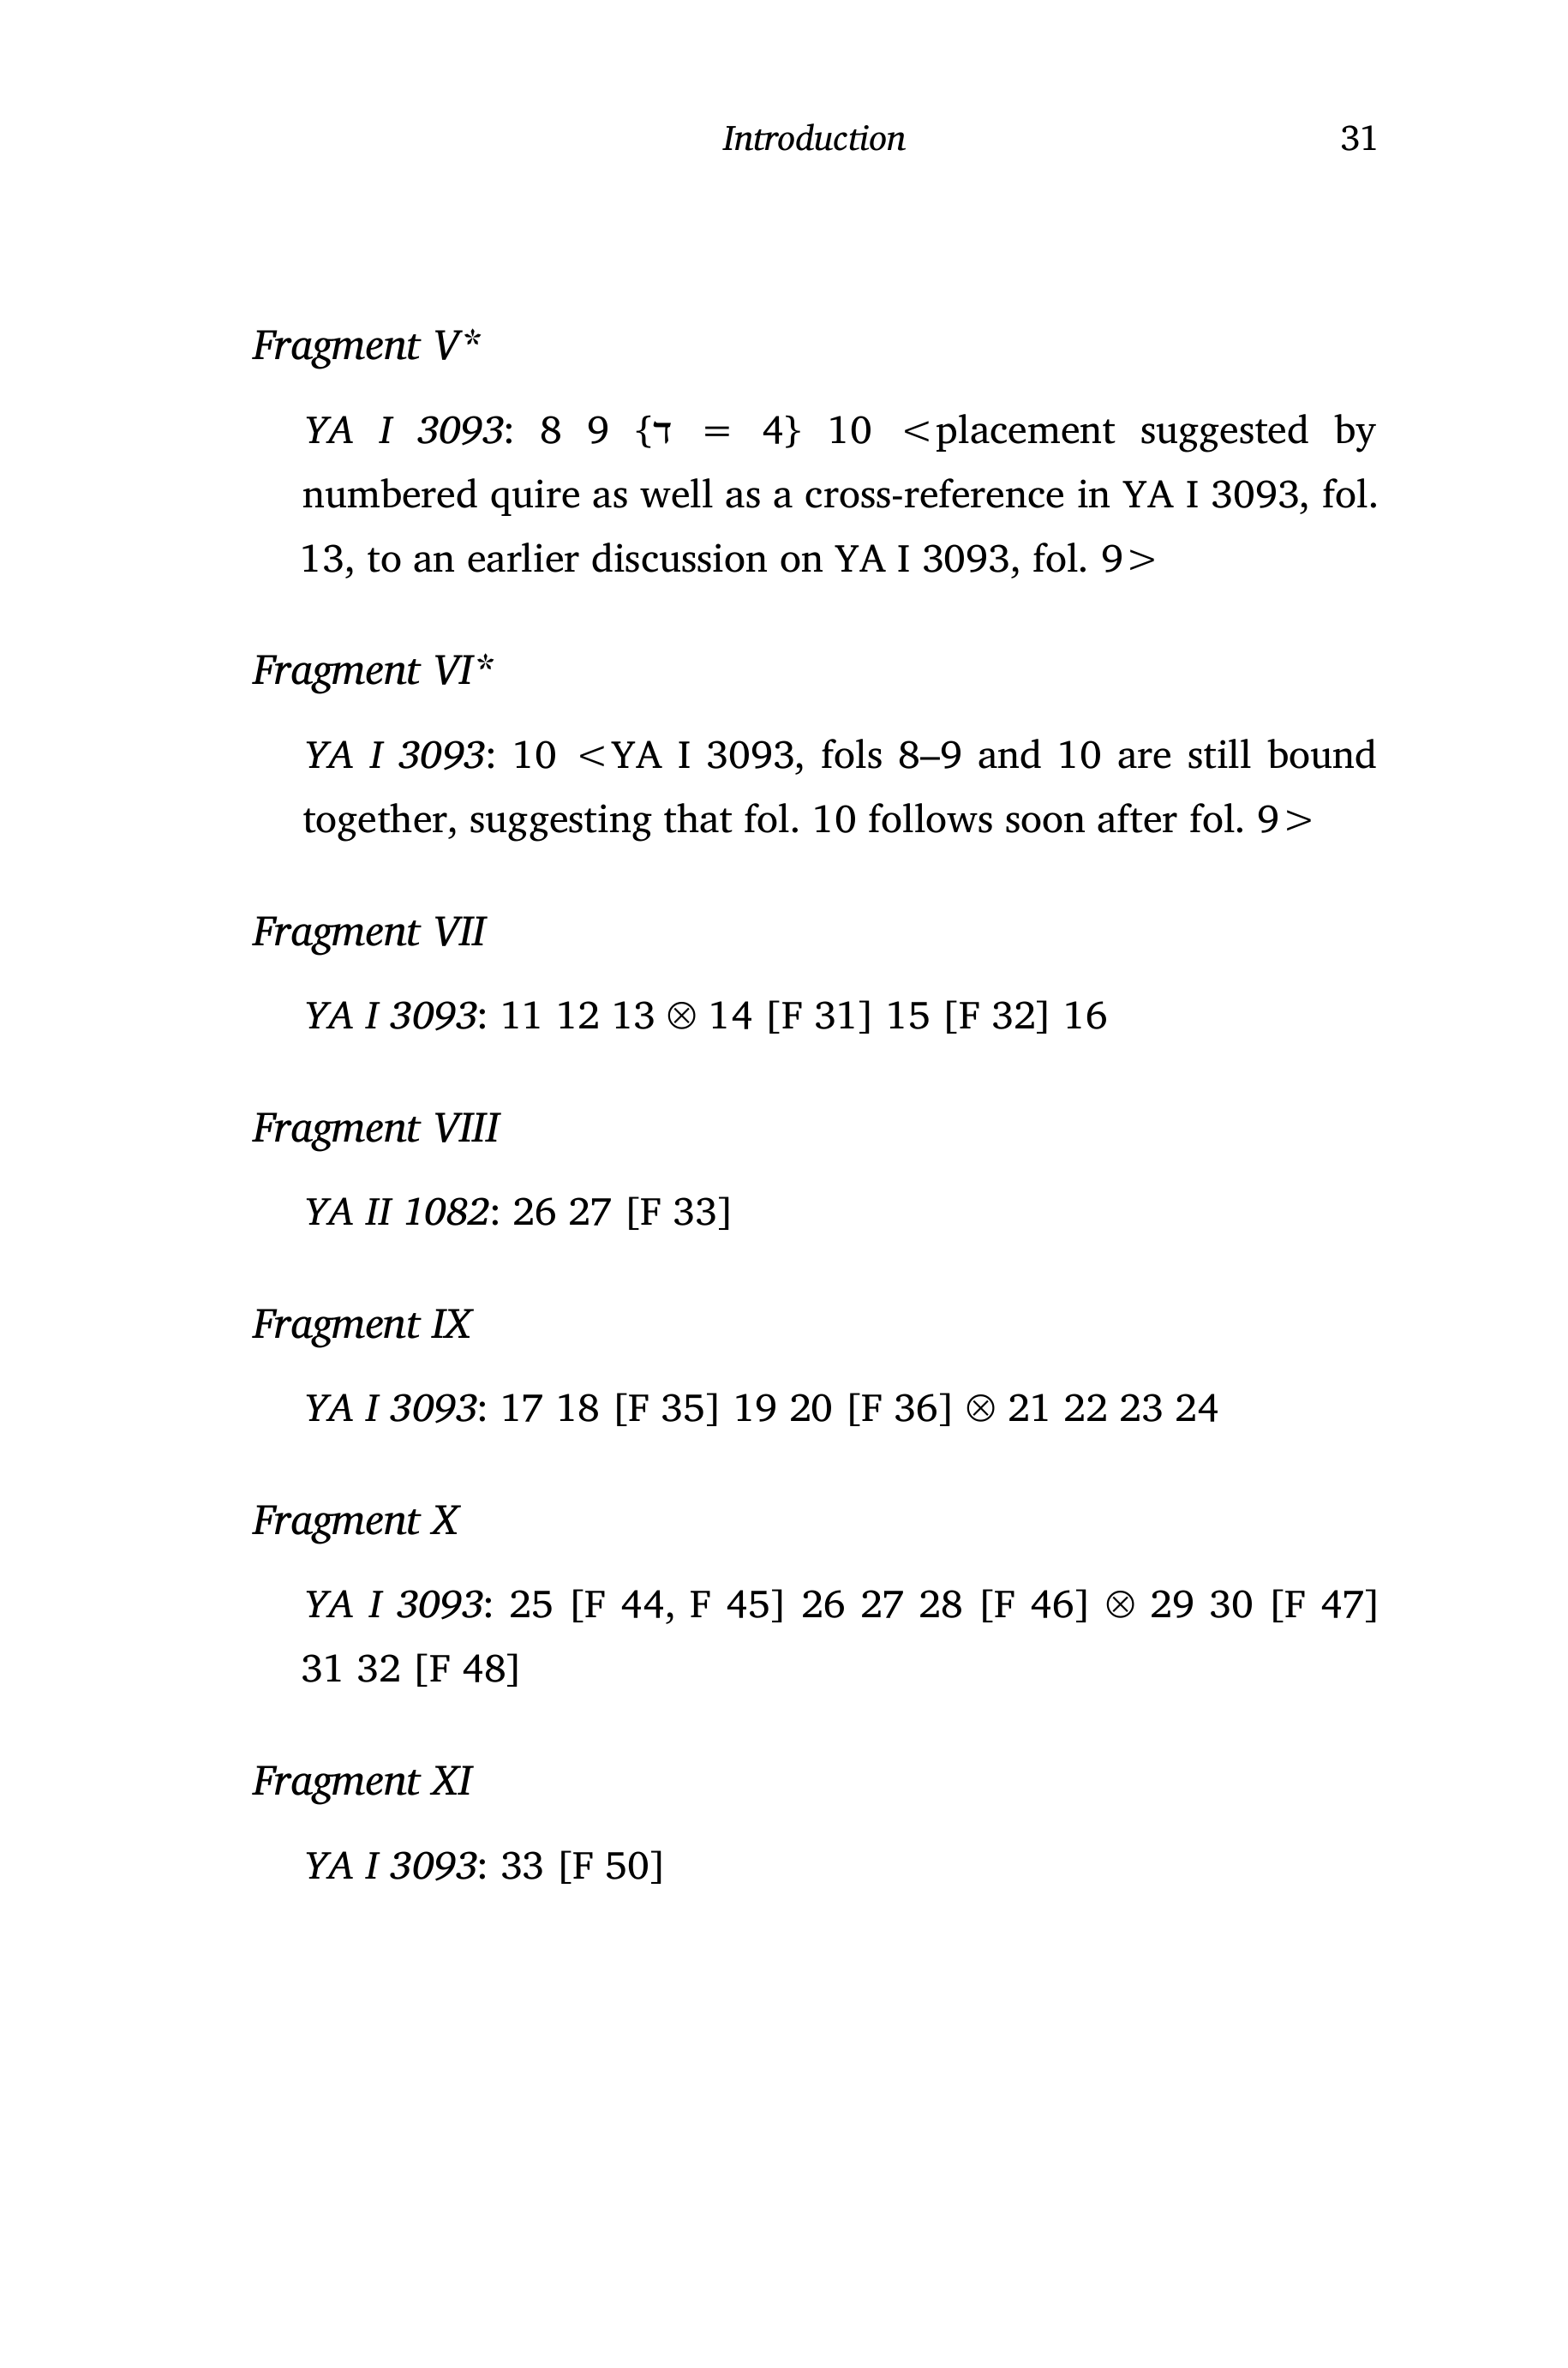 Introduction 31
Fragment V*
YA I 3093: 8 9 {ד = 4} 10 <placement suggested by
numbered quire as well as a cross-reference in YA I 3093, fol.
13, to an earlier discussion on YA I 3093, fol. 9>
Fragment VI*
YA I 3093: 10 <YA I 3093, fols 8–9 and 10 are still bound
together, suggesting that fol. 10 follows soon after fol. 9>
Fragment VII
YA I 3093: 11 12 13 ⊗ 14 [F 31] 15 [F 32] 16
Fragment VIII
YA II 1082: 26 27 [F 33]
Fragment IX
YA I 3093: 17 18 [F 35] 19 20 [F 36] ⊗ 21 22 23 24
Fragment X
YA I 3093: 25 [F 44, F 45] 26 27 28 [F 46] ⊗ 29 30 [F 47]
31 32 [F 48]
Fragment XI
YA I 3093: 33 [F 50]